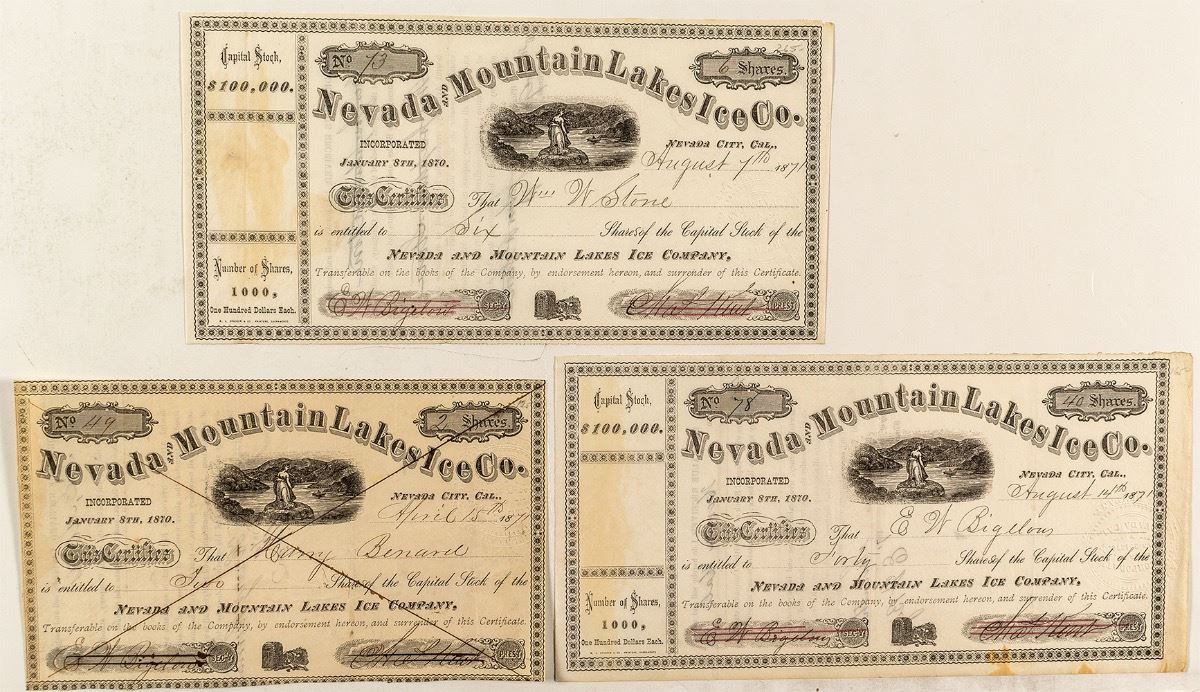 Capital Stock,
$100,000.
Number of Shares,
1000,
One Hundred Dollars Each.
No 73
6 Shares.
Nevada AND Mountain Lakes Ice Co.
INCORPORATED
JANUARY 8TH, 1870.
NEVADA CITY, CAL.,
August 7th 1871
This Certifies That Wm W Stone
is entitled to Six Shares of the Capital Stock of the
NEVADA AND MOUNTAIN LAKES ICE COMPANY,
Transferable on the books of the Company, by endorsement hereon, and surrender of this Certificate.
E W Bigelow SECT
PREST
No 49
2 Shares.
Nevada AND Mountain Lakes Ice Co.
INCORPORATED
JANUARY 8TH, 1870.
NEVADA CITY, CAL.,
April 15th 1871
This Certifies That Henry Benard
is entitled to Two Shares of the Capital Stock of the
NEVADA AND MOUNTAIN LAKES ICE COMPANY,
Transferable on the books of the Company, by endorsement hereon, and surrender of this Certificate.
E W Bigelow SECT
PREST
Capital Stock,
$100,000.
Number of Shares,
1000,
One Hundred Dollars Each.
No 78
40 Shares.
Nevada AND Mountain Lakes Ice Co.
INCORPORATED
JANUARY 8TH, 1870.
NEVADA CITY, CAL.,
August 14th 1871
This Certifies That E W Bigelow
is entitled to Forty Shares of the Capital Stock of the
NEVADA AND MOUNTAIN LAKES ICE COMPANY,
Transferable on the books of the Company, by endorsement hereon, and surrender of this Certificate.
E W Bigelow SECT
PREST